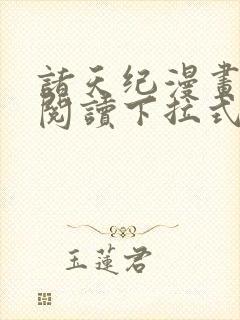 諸天纪漫畫
閱讀下拉式
玉蓮君